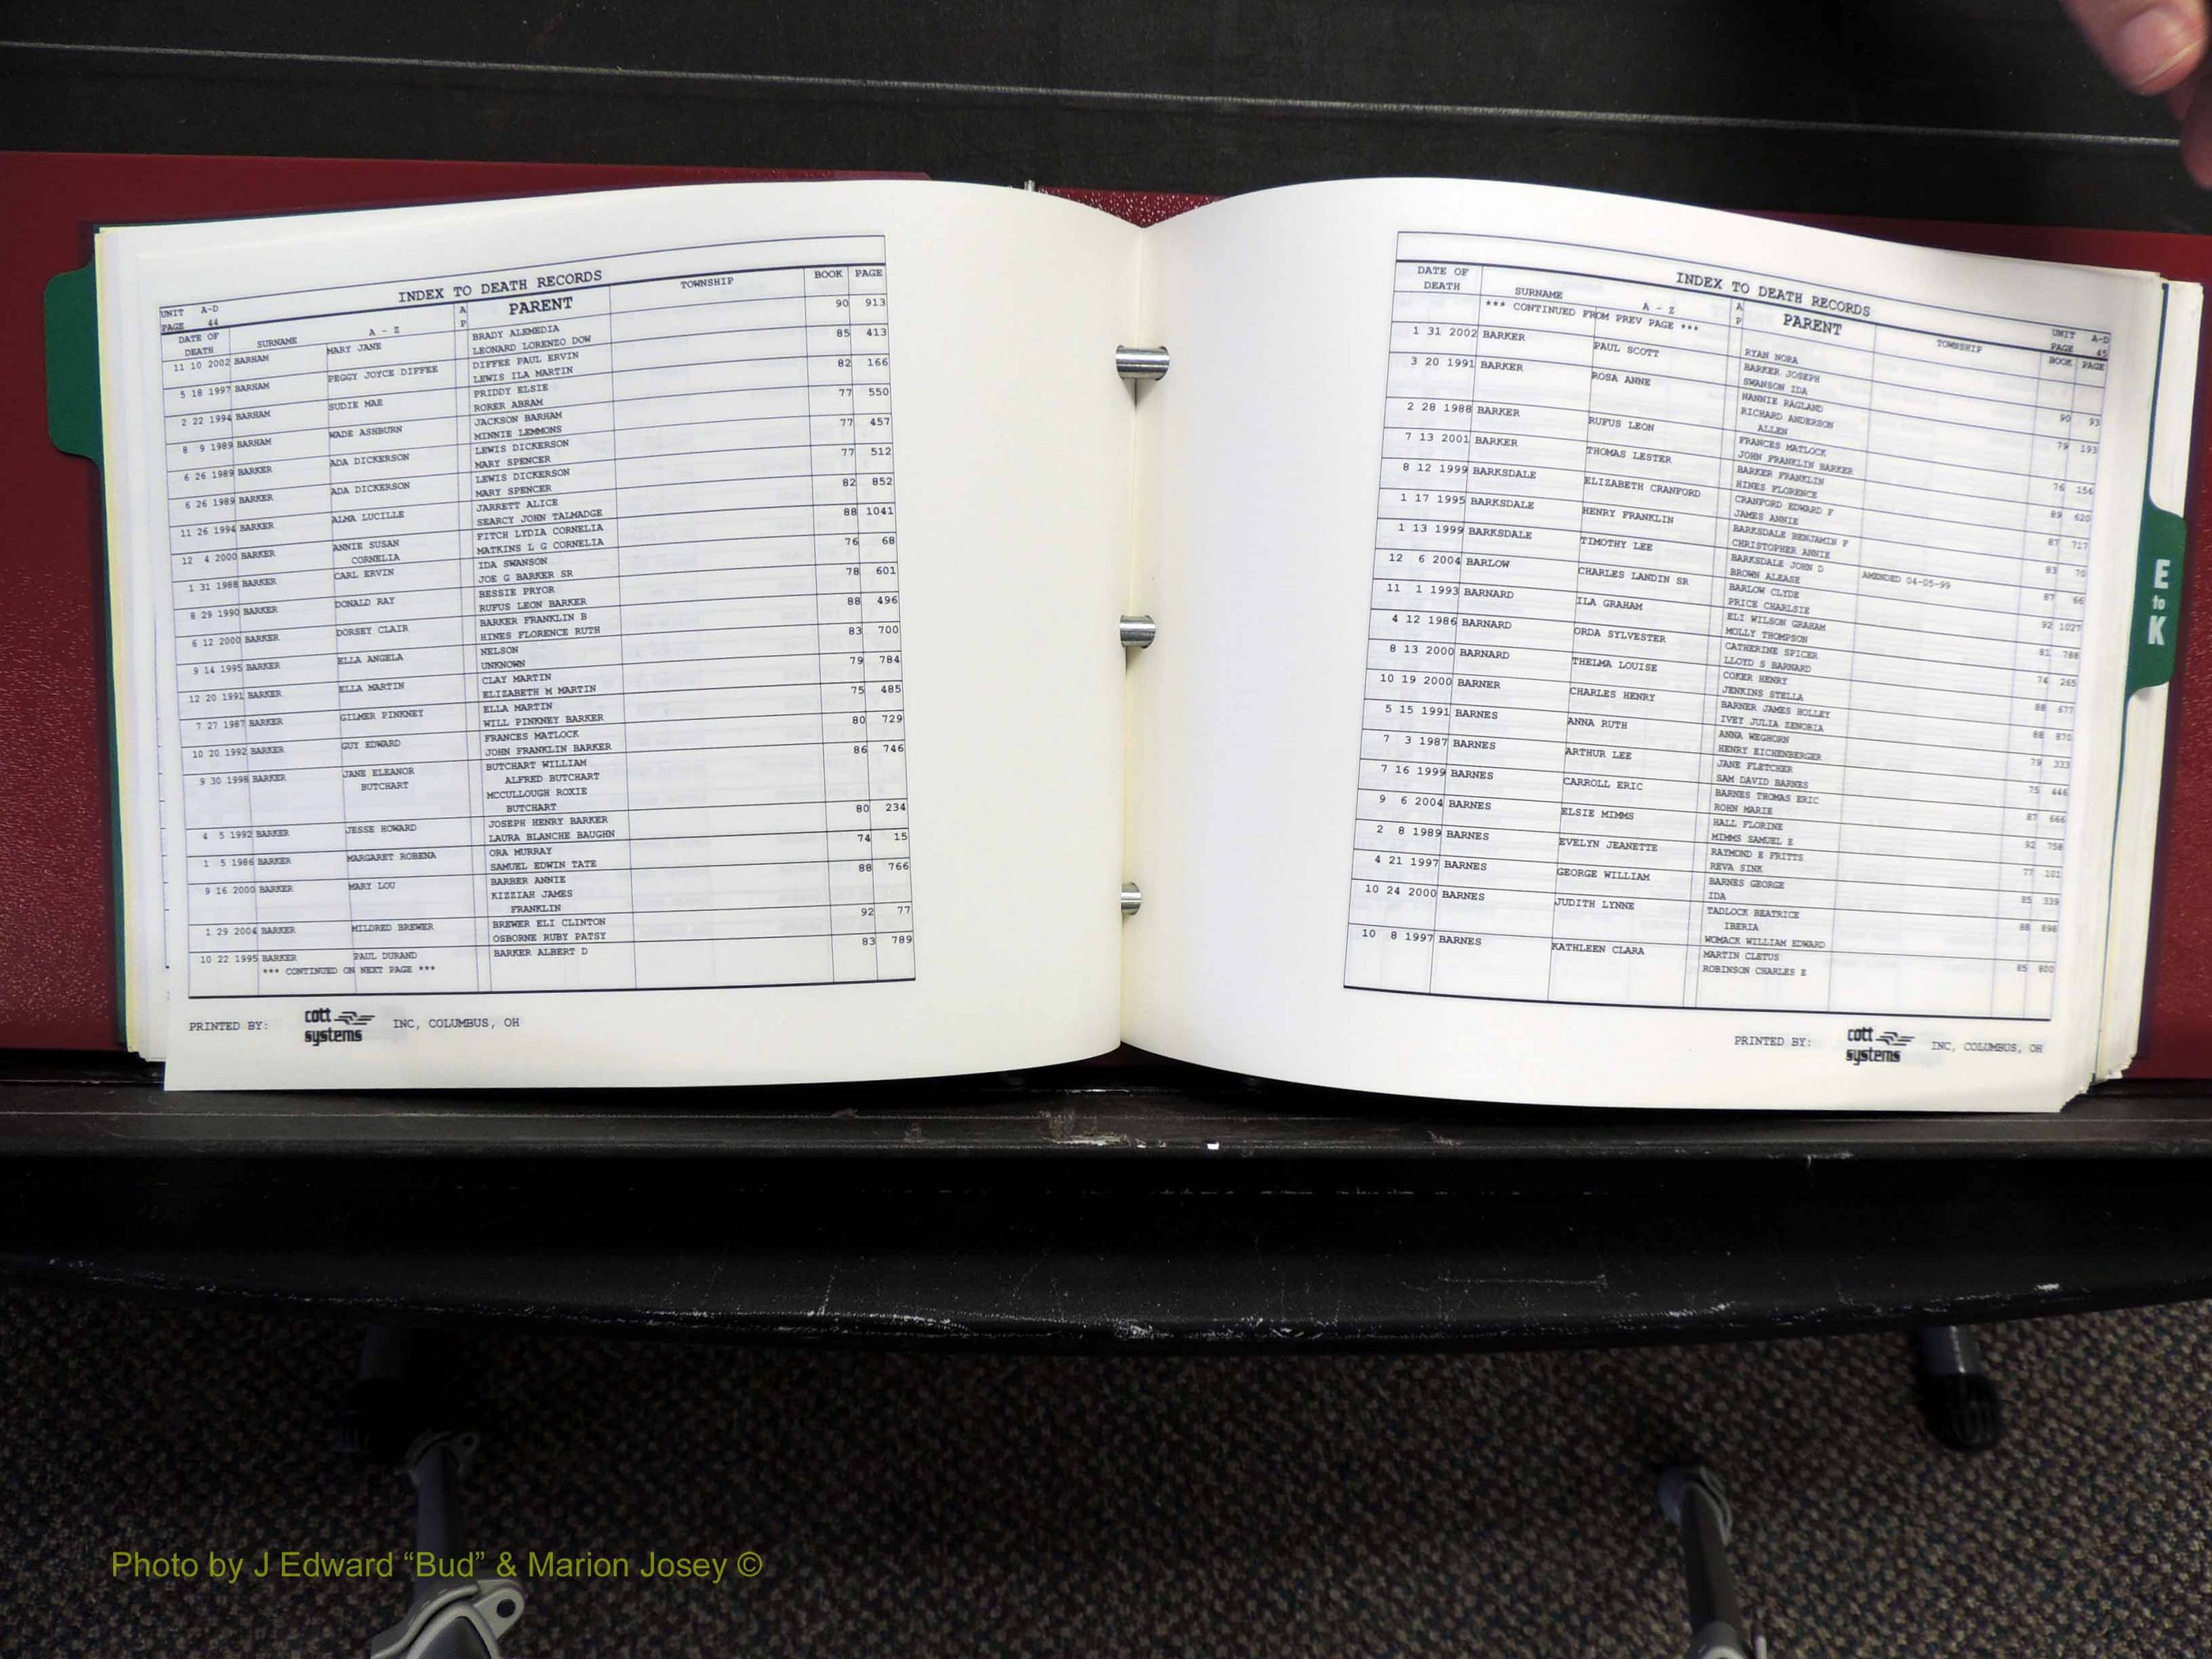 INDEX TO DEATH RECORDS
UNIT A-D
PAGE 44
DATE OF DEATH SURNAME A - Z A P PARENT TOWNSHIP BOOK PAGE
11 10 2002 BARHAM MARY JANE BRADY ALEMEDIA 90 913
LEONARD LORENZO DOW
5 18 1997 BARHAM PEGGY JOYCE DIFFEE DIFFEE PAUL ERVIN 85 413
LEWIS ILA MARTIN
2 22 1994 BARHAM SUDIE MAE PRIDDY ELSIE 82 166
RORER ABRAM
8 9 1989 BARHAM WADE ASHBURN JACKSON BARHAM 77 550
MINNIE LEMMONS
6 26 1989 BARKER ADA DICKERSON LEWIS DICKERSON 77 457
MARY SPENCER
6 26 1989 BARKER ADA DICKERSON LEWIS DICKERSON 77 512
MARY SPENCER
11 26 1994 BARKER ALMA LUCILLE JARRETT ALICE 82 852
SEARCY JOHN TALMADGE
12 4 2000 BARKER ANNIE SUSAN FITCH LYDIA CORNELIA 88 1041
CORNELIA MATKINS L G CORNELIA
1 31 1988 BARKER CARL ERVIN IDA SWANSON 76 68
JOE G BARKER SR
8 29 1990 BARKER DONALD RAY BESSIE PRYOR 78 601
RUFUS LEON BARKER
6 12 2000 BARKER DORSEY CLAIR BARKER FRANKLIN B 88 496
HINES FLORENCE RUTH
9 14 1995 BARKER ELLA ANGELA NELSON 83 700
UNKNOWN
12 20 1991 BARKER ELLA MARTIN CLAY MARTIN 79 784
ELIZABETH M MARTIN
7 27 1987 BARKER GILMER PINKNEY ELLA MARTIN 75 485
WILL PINKNEY BARKER
10 20 1992 BARKER GUY EDWARD FRANCES MATLOCK 80 729
JOHN FRANKLIN BARKER
9 30 1998 BARKER JANE ELEANOR BUTCHART WILLIAM 86 746
BUTCHART ALFRED BUTCHART
MCCULLOUGH ROXIE
BUTCHART
4 5 1992 BARKER JESSE HOWARD JOSEPH HENRY BARKER 80 234
LAURA BLANCHE BAUGHN
1 5 1986 BARKER MARGARET ROBENA ORA MURRAY 74 15
SAMUEL EDWIN TATE
9 16 2000 BARKER MARY LOU BARBER ANNIE 88 766
KIZZIAH JAMES
FRANKLIN
1 29 2004 BARKER MILDRED BREWER BREWER ELI CLINTON 92 77
OSBORNE RUBY PATSY
10 22 1995 BARKER PAUL DURAND BARKER ALBERT D 83 789
*** CONTINUED ON NEXT PAGE ***
PRINTED BY: cott systems INC, COLUMBUS, OH
INDEX TO DEATH RECORDS
UNIT A-D
PAGE 45
DATE OF DEATH SURNAME A - Z A P PARENT TOWNSHIP BOOK PAGE
*** CONTINUED FROM PREV PAGE ***
RYAN NORA
1 31 2002 BARKER PAUL SCOTT BARKER JOSEPH 90 93
SWANSON IDA
3 20 1991 BARKER ROSA ANNE NANNIE RAGLAND 79 193
RICHARD ANDERSON
ALLEN
2 28 1988 BARKER RUFUS LEON FRANCES MATLOCK 76 156
JOHN FRANKLIN BARKER
7 13 2001 BARKER THOMAS LESTER BARKER FRANKLIN 89 620
HINES FLORENCE
8 12 1999 BARKSDALE ELIZABETH CRANFORD CRANFORD EDWARD F 87 717
JAMES ANNIE
1 17 1995 BARKSDALE HENRY FRANKLIN BARKSDALE BENJAMIN F 83 70
CHRISTOPHER ANNIE
1 13 1999 BARKSDALE TIMOTHY LEE BARKSDALE JOHN D AMENDED 04-05-99 87 66
BROWN ALEASE
12 6 2004 BARLOW CHARLES LANDIN SR BARLOW CLYDE 92 1027
PRICE CHARLSIE
11 1 1993 BARNARD ILA GRAHAM ELI WILSON GRAHAM 81 788
MOLLY THOMPSON
4 12 1986 BARNARD ORDA SYLVESTER CATHERINE SPICER 74 265
LLOYD S BARNARD
8 13 2000 BARNARD THELMA LOUISE COKER HENRY 88 677
JENKINS STELLA
10 19 2000 BARNER CHARLES HENRY BARNER JAMES HOLLEY 88 870
IVEY JULIA ZENOBIA
5 15 1991 BARNES ANNA RUTH ANNA WEGHORN 79 333
HENRY EICHENBERGER
7 3 1987 BARNES ARTHUR LEE JANE FLETCHER 75 446
SAM DAVID BARNES
7 16 1999 BARNES CARROLL ERIC BARNES THOMAS ERIC 87 666
ROHN MARIE
9 6 2004 BARNES ELSIE MIMMS HALL FLORINE 92 758
MIMMS SAMUEL E
2 8 1989 BARNES EVELYN JEANETTE RAYMOND E FRITTS 77 101
REVA SINK
4 21 1997 BARNES GEORGE WILLIAM BARNES GEORGE 85 339
IDA
10 24 2000 BARNES JUDITH LYNNE TADLOCK BEATRICE 88 898
IBERIA
WOMACK WILLIAM EDWARD
10 8 1997 BARNES KATHLEEN CLARA MARTIN CLETUS 85 800
ROBINSON CHARLES E
PRINTED BY: cott systems INC, COLUMBUS, OH
E
to
K
Photo by J Edward “Bud” & Marion Josey ©